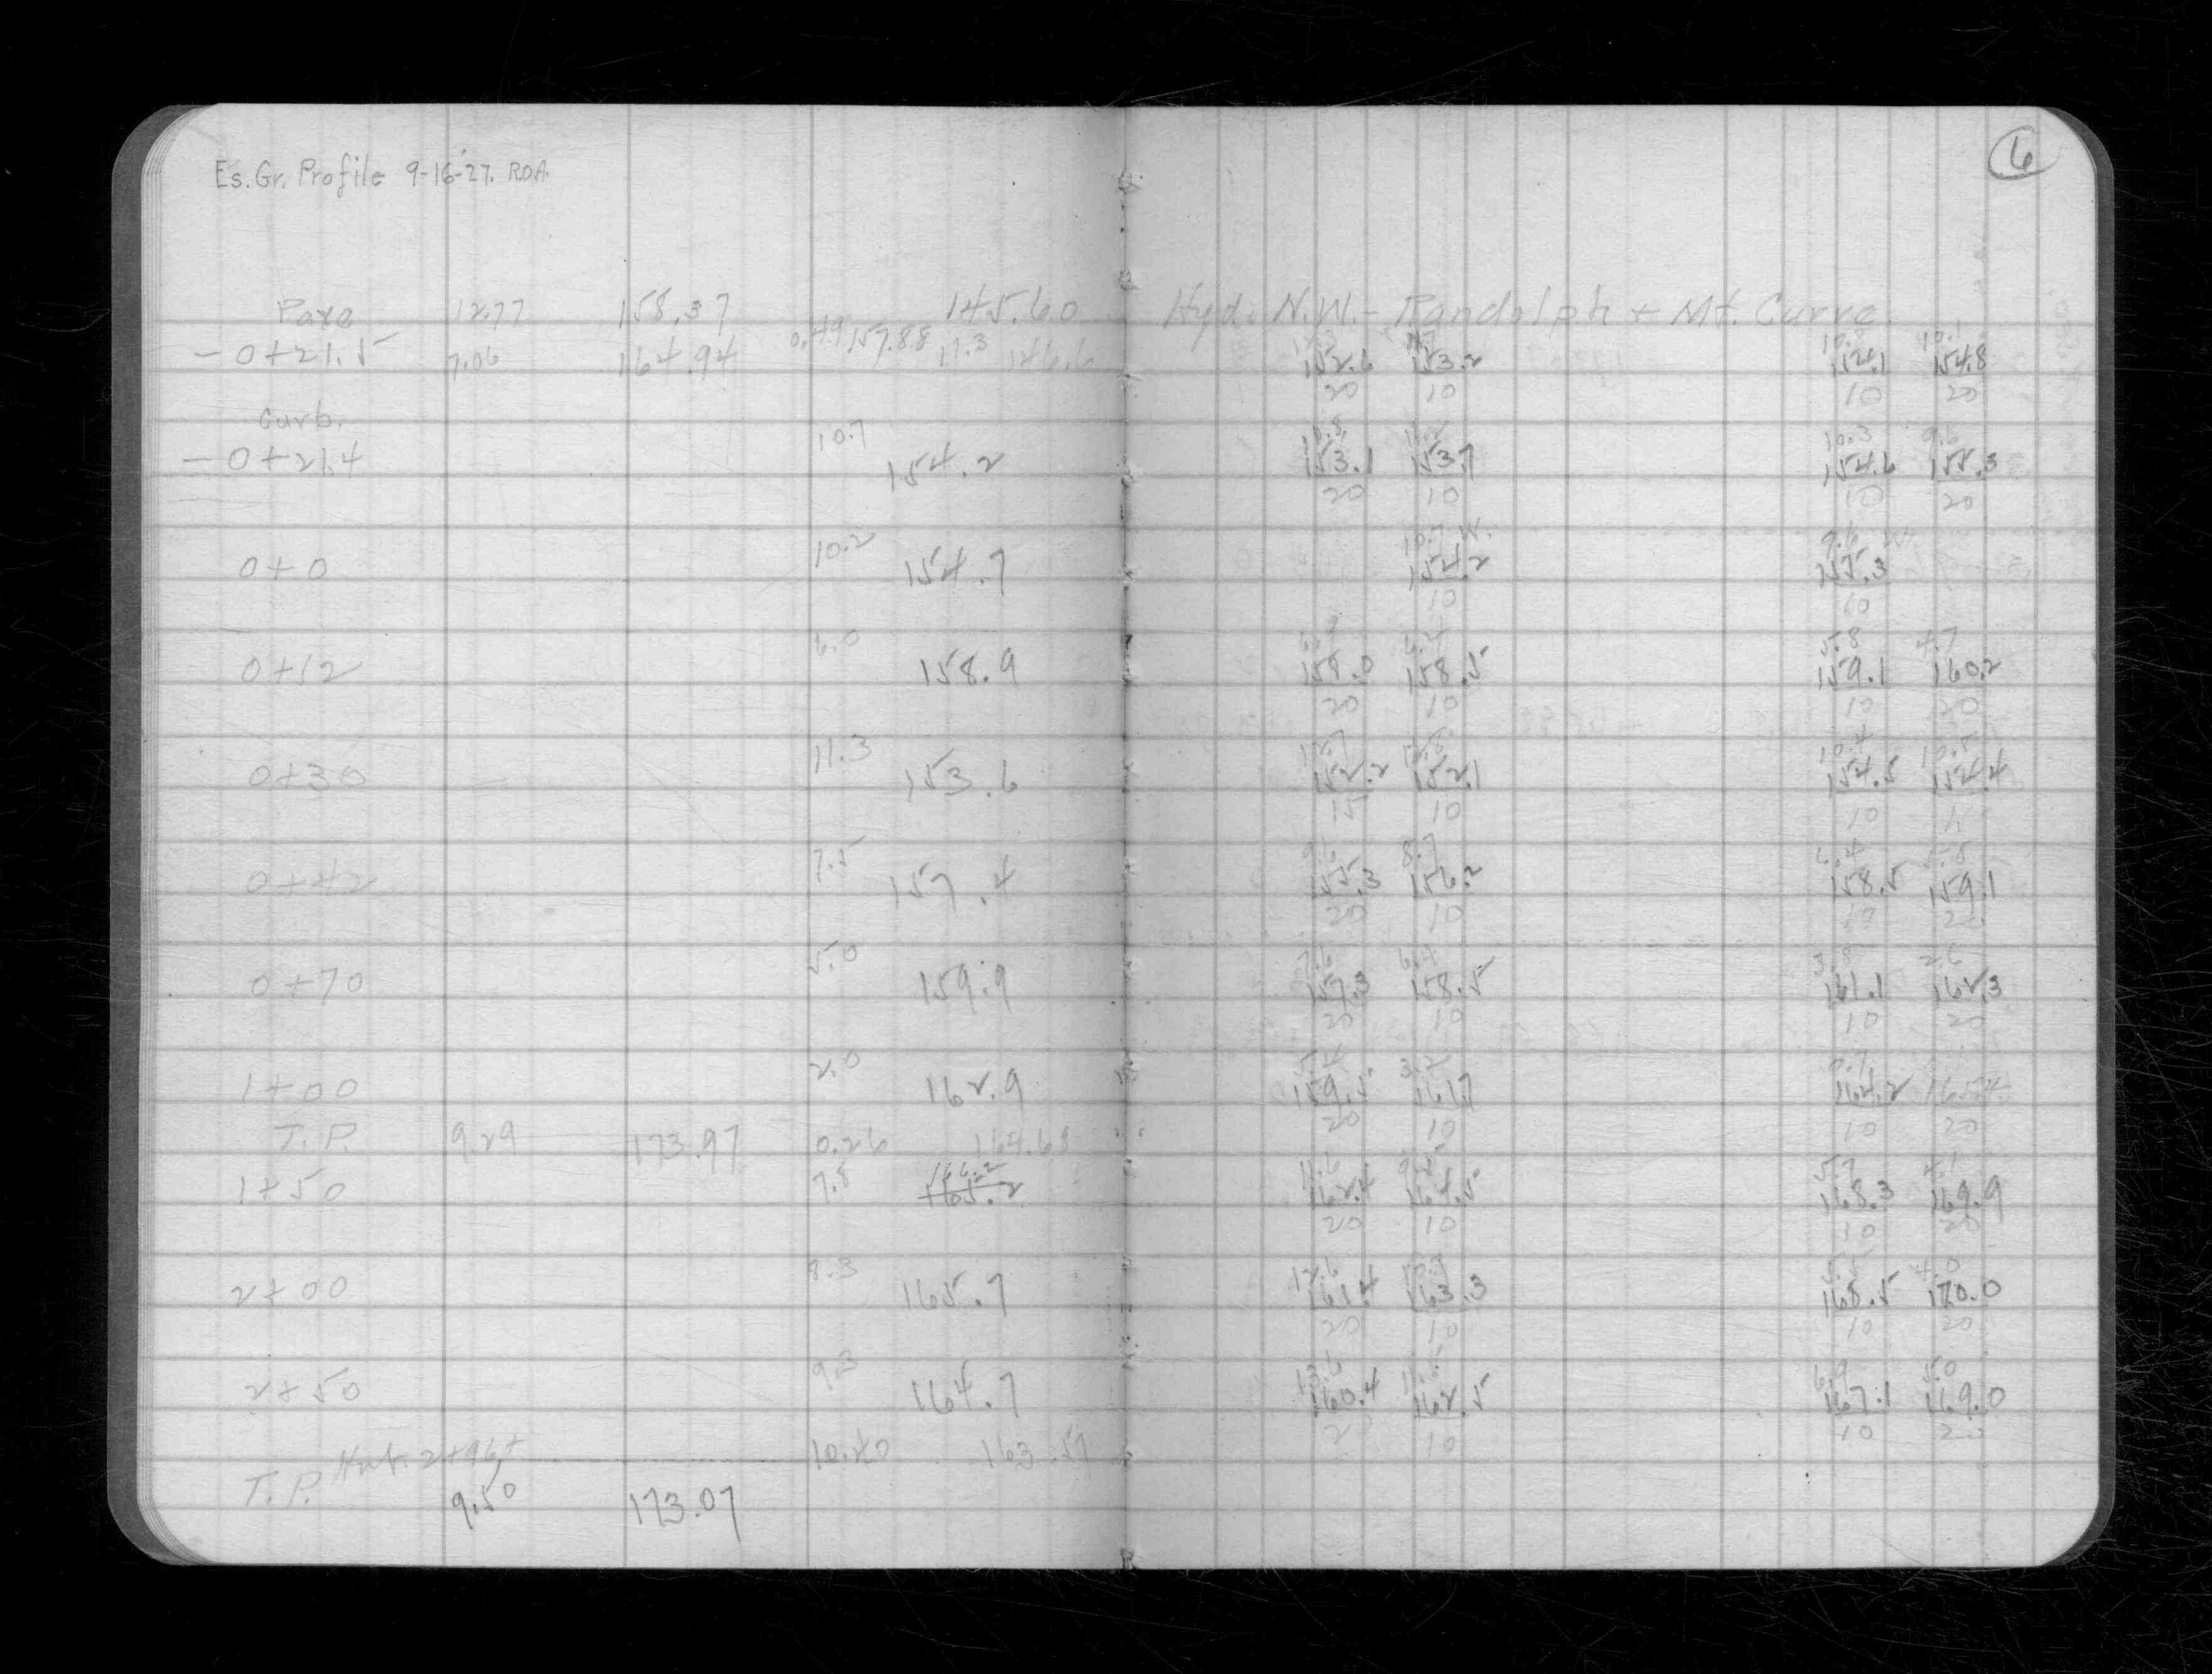 6
Es. Gr. Profile 9-16-'27. R.O.A.
Pave 12.77 158.37 145.60 Hyd. N.W. - Randolph + Mt. Curve.
-0+21.5 7.06 164.94 0.49 157.88 11.3 152.6 153.2 154.1 154.8
20 10 10 20
Curb.
10.7 10.3
-0+21.4 154.2 153.1 153.7 154.6 155.3
20 10 10 20
10.2 10.7 W. 9.6
0+0 154.7 154.2 155.3
10 10
6.0 6.4 5.8 4.7
0+12 158.9 158.0 158.5 159.1 160.2
20 10 10 20
11.3 12.7 10.4 10.5
0+30 153.6 152.2 152.1 154.5 154.4
15 10 10 15
7.5 9.6 8.7 6.4 5.8
0+42 157.4 155.3 156.2 158.5 159.1
20 10 10 20
5.0 7.6 6.4 3.8 2.6
0+70 159.9 157.3 158.5 161.1 162.3
20 10 10 20
2.0 5.4 3.2 0.7
1+00 162.9 159.5 161.7 164.2
20 10 10 20
T.P. 9.29 173.97 0.26 164.68
7.8 166.2 11.6 5.7 4.1
1+50 165.2 162.4 164.5 168.3 169.9
20 10 10 20
8.3 12.6 10.7 5.5 4.0
2+00 165.7 161.4 163.3 168.5 170.0
20 10 10 20
9.3 13.6 6.9 5.0
2+50 164.7 160.4 162.5 167.1 169.0
20 10 10 20
Hub. 2+96+ 10.40 163.57
T.P. 9.50 173.07